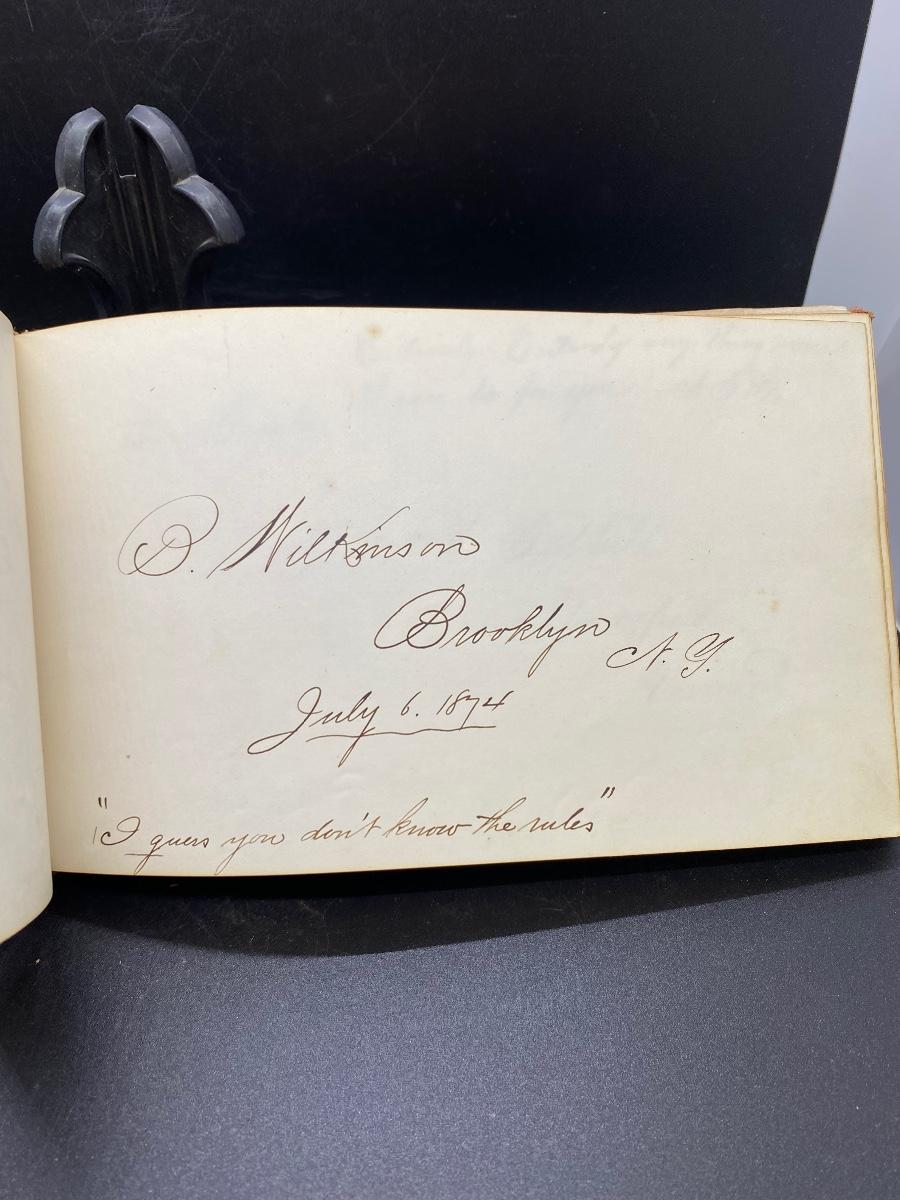 B. Wilkinson
Brooklyn N.Y.
July 6. 1874
"I guess you don't know the rules"